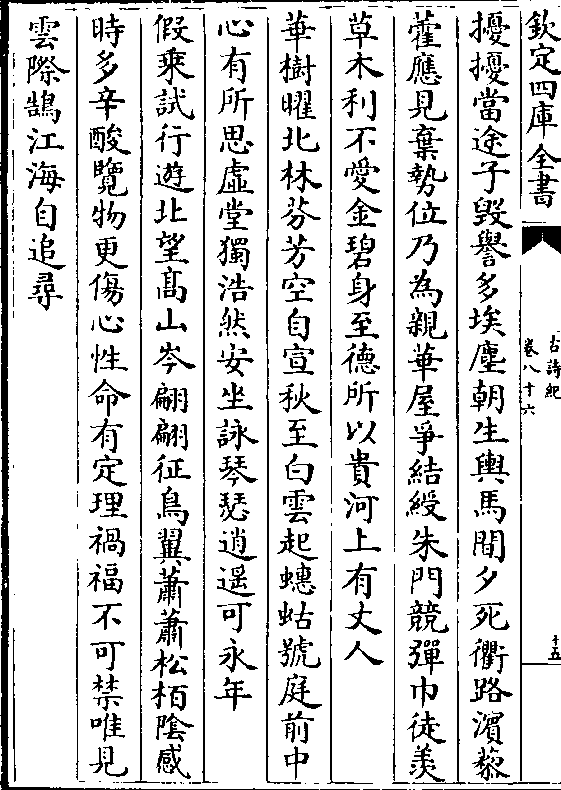 欽定四庫全書
古詩紀
卷八十六
十五
擾擾當途子毀譽多埃塵朝生輿馬間夕死衢路濵藜
藿應見棄勢位乃為親華屋爭結綬朱門競彈巾徒羡
草木利不愛金碧身至德所以貴河上有丈人
華樹曜北林芬芳空自宣秋至白雲起蟪蛄號庭前中
心有所思虛堂獨浩然安坐詠琴瑟逍遥可永年
假乗試行遊北望髙山岑翩翩征鳥翼蕭蕭松栢隂感
時多辛酸覽物更傷心性命有定理禍福不可禁唯見
雲際鵠江海自追尋